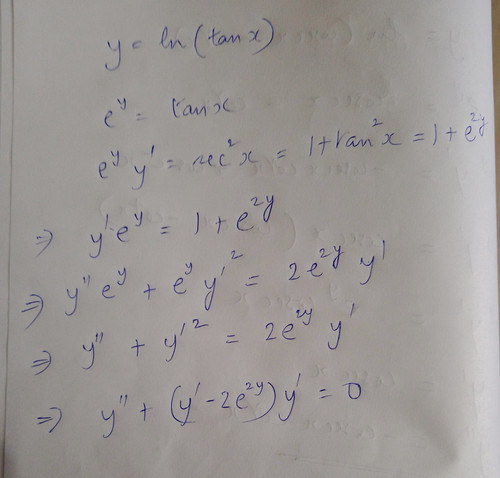 y = ln(tanx)
e^y = tanx
e^y y' = sec²x = 1+tan²x = 1+e^{2y}
⇒ y'e^y = 1 + e^{2y}
⇒ y''e^y + e^y y'² = 2e^{2y} y'
⇒ y'' + y'² = 2e^{2y} y'
⇒ y'' + (y'-2e^{2y})y' = 0